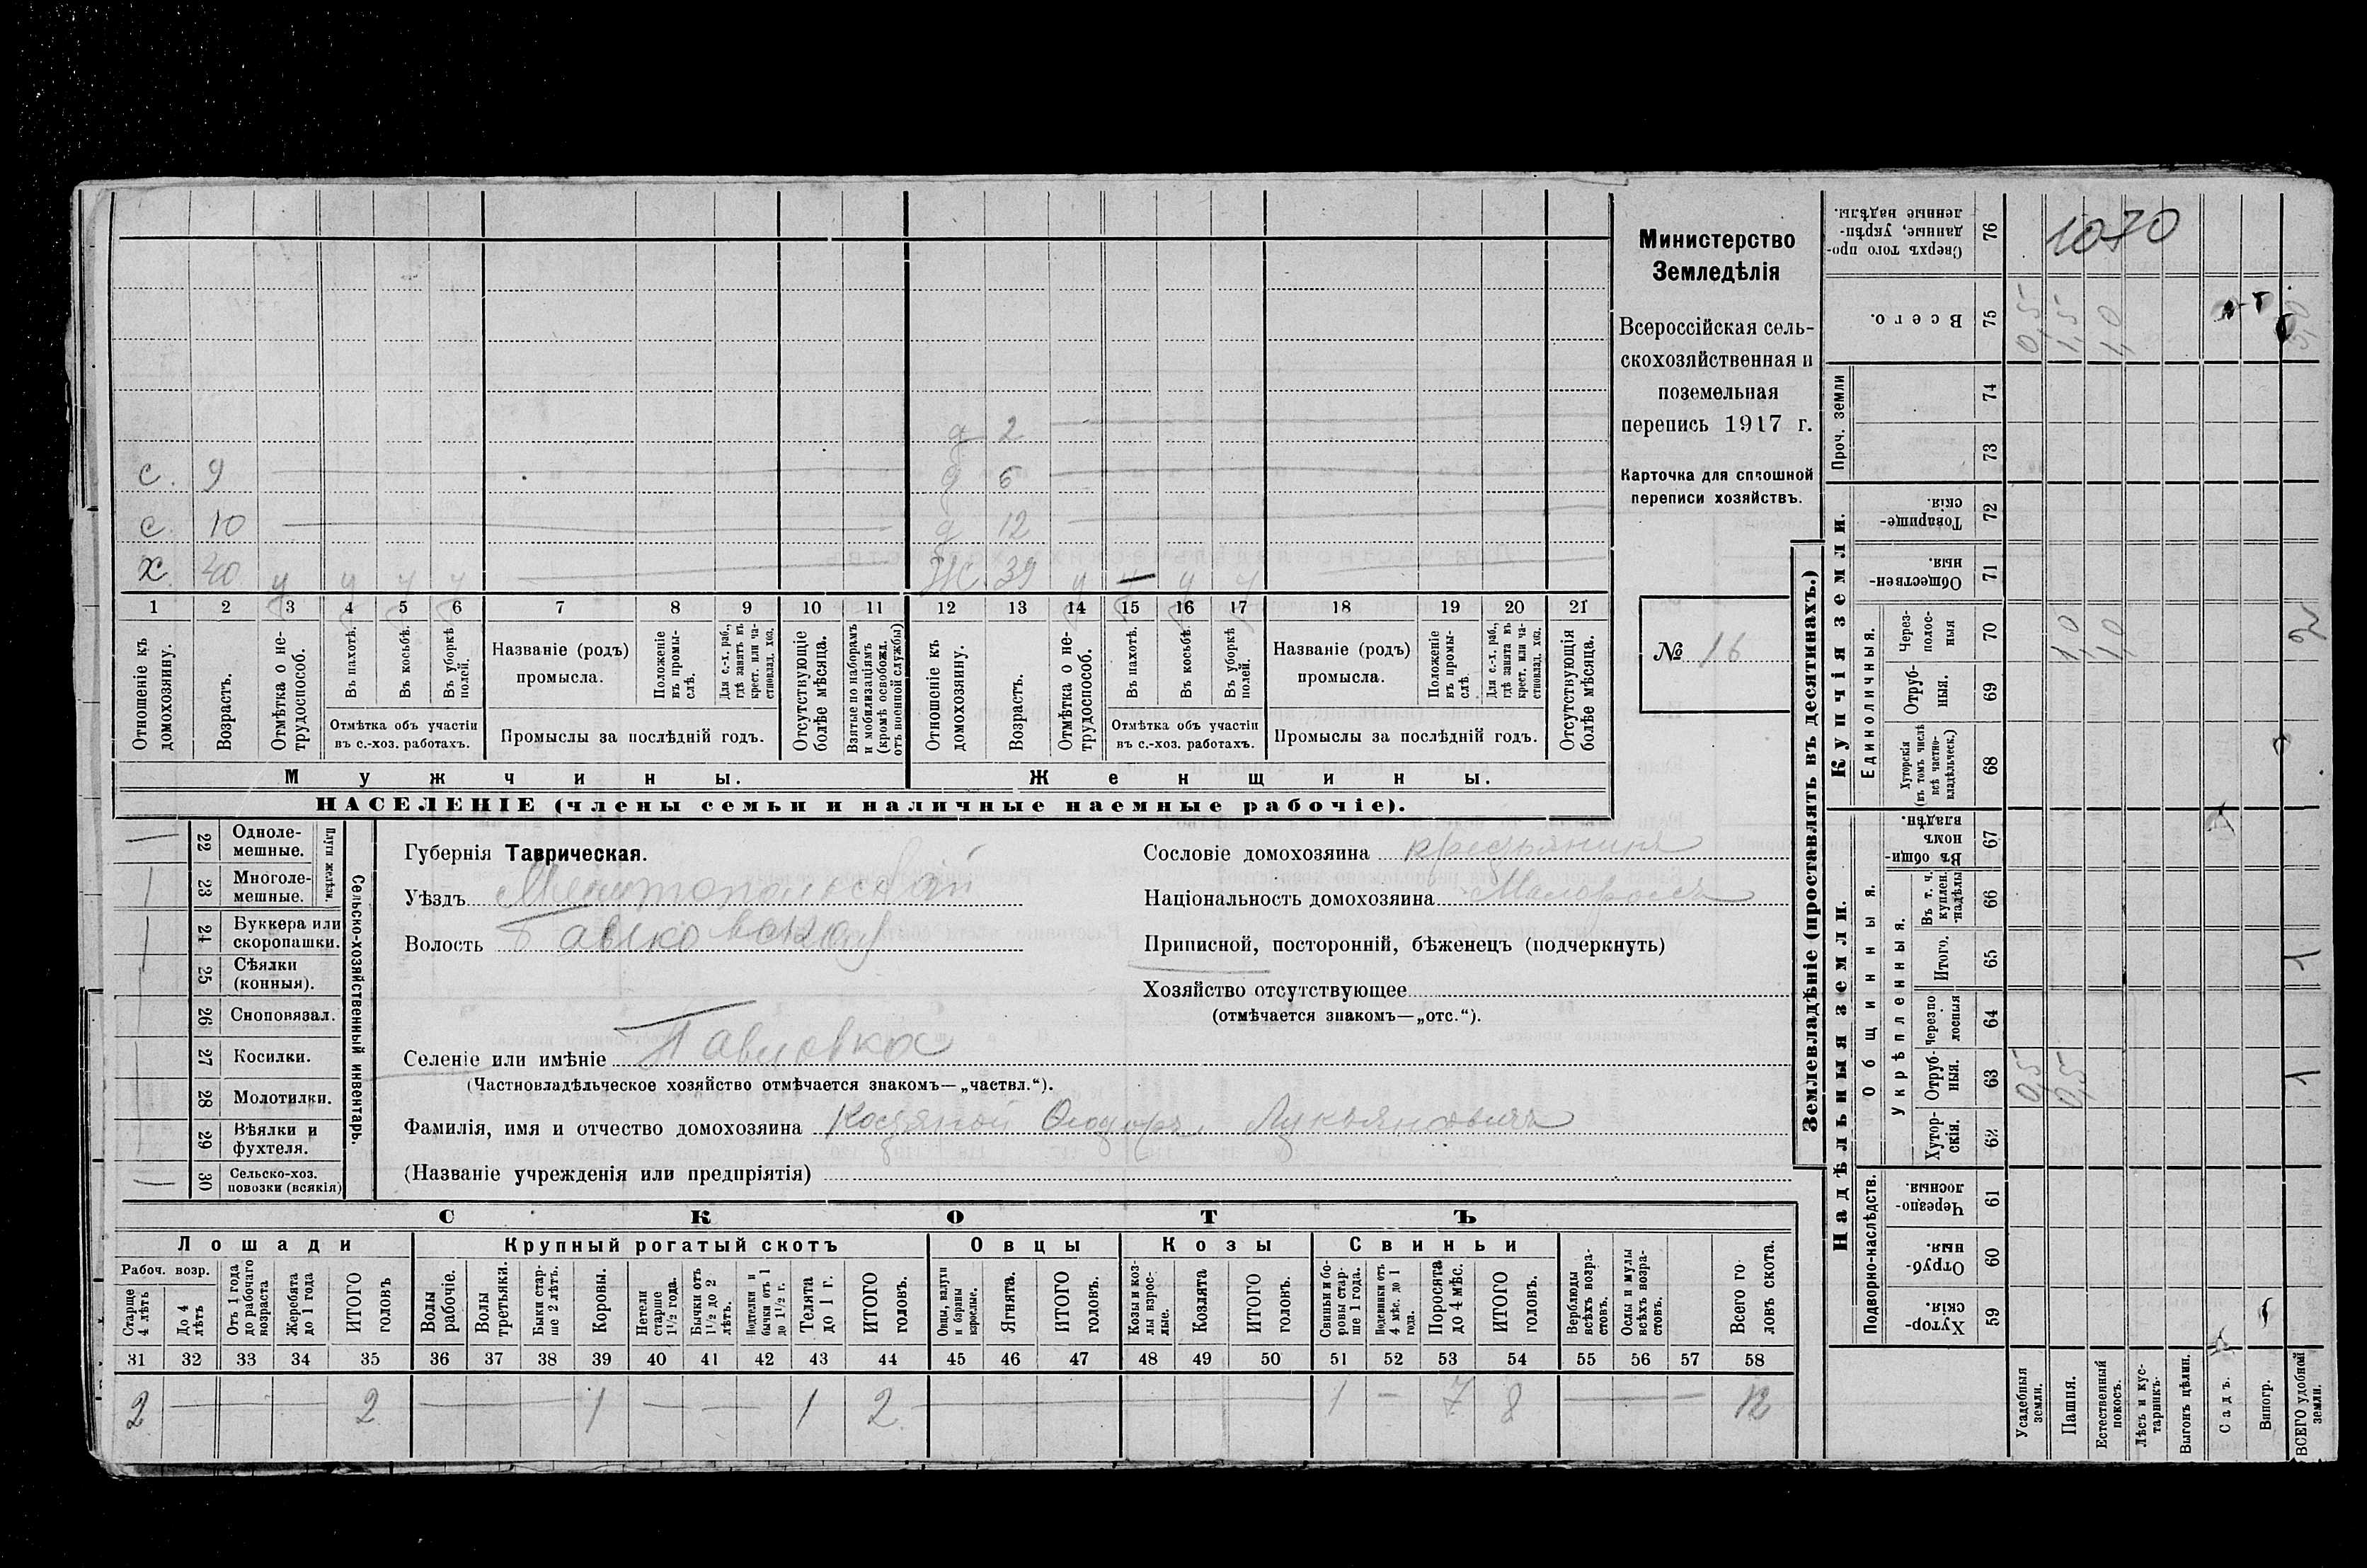 с. 9 д 2
с. 10 д 6
х. 40 у у у у д 12
Ж. 39 у у у
1 2 3 4 5 6 7 8 9 10 11 12 13 14 15 16 17 18 19 20 21
Отношеніе къ домохозяину.
Возрастъ.
Отмѣтка о не-
трудоспособ.
Въ пахотѣ.
Въ косьбѣ.
Въ уборкѣ
полей.
Отмѣтка объ участіи
въ с.-хоз. работахъ.
Названіе (родъ)
промысла.
Положеніе
въ промы-
слѣ.
Для с.-х. раб.,
гдѣ занятъ въ
крест. или ча-
стновлад. хоз.
Промыслы за послѣдній годъ.
Отсутствующіе
болѣе мѣсяца.
Взятые по наборамъ
и мобилизаціямъ
(кромѣ освобожд.
отъ военной службы)
Отношеніе къ
домохозяину.
Возрастъ.
Отмѣтка о не-
трудоспособ.
Въ пахотѣ.
Въ косьбѣ.
Въ уборкѣ
полей.
Отмѣтка объ участіи
въ с.-хоз. работахъ.
Названіе (родъ)
промысла.
Положеніе
въ промы-
слѣ.
Для с.-х. раб.,
гдѣ занята въ
крест. или ча-
стновлад. хоз.
Промыслы за послѣдній годъ.
Отсутствующія
болѣе мѣсяца.
Мужчины.
Женщины.
НАСЕЛЕНІЕ (члены семьи и наличные наемные рабочіе).
Министерство
Земледѣлія
Всероссійская сель-
скохозяйственная и
поземельная
перепись 1917 г.
Карточка для сплошной
переписи хозяйствъ.
№ 16
22 Одноле-
мешные.
23 Многоле-
мешные.
Плуги желѣзн.
24 Буккера или
скоропашки.
25 Сѣялки
(конныя).
26 Сноповязал.
27 Косилки.
28 Молотилки.
29 Вѣялки и
фухтеля.
30 Сельско-хоз.
повозки (всякія)
Сельско-хозяйственный инвентарь.
Губернія Таврическая.
Уѣздъ Мелитопольскій
Волость
Селеніе или имѣніе Павловка
(Частновладѣльческое хозяйство отмѣчается знакомъ—„частвл.“).
Фамилія, имя и отчество домохозяина Ѳеодоръ Лукьяновичъ
(Названіе учрежденія или предпріятія)
Сословіе домохозяина крестьянинъ
Національность домохозяина Малороссъ
Приписной, посторонній, бѣженецъ (подчеркнуть)
Хозяйство отсутствующее
(отмѣчается знакомъ—„отс.“).
СКОТЪ
Лошади
Крупный рогатый скотъ
Овцы
Козы
Свиньи
Рабоч. возр.
Старше
4 лѣтъ
До 4
лѣтъ
Отъ 1 года
до рабочаго
возраста
Жеребята
до 1 года
ИТОГО
головъ
Волы
рабочіе.
Волы
третьяки.
Быки стар-
ше 2 лѣтъ.
Коровы.
Нетели
старше
1½ года.
Бычки отъ
1½ до 2
лѣтъ.
Подтелки и
бычки отъ 1
до 1½ г.
Телята
до 1 г.
ИТОГО
головъ.
Овцы, валухи
и бараны
взрослые.
Ягнята.
ИТОГО
головъ.
Козы и коз-
лы взрос-
лые.
Козлята
ИТОГО
головъ.
Свиньи и бо-
ровы стар-
ше 1 года.
Подсвинки отъ
4 мѣс. до 1
года.
Поросята
до 4 мѣс.
ИТОГО
головъ.
Верблюды
всѣхъ возра-
стовъ.
Ослы и мулы
всѣхъ возра-
стовъ.
Всего го-
ловъ скота.
31 32 33 34 35 36 37 38 39 40 41 42 43 44 45 46 47 48 49 50 51 52 53 54 55 56 57 58
2 — 2 — 1 — — 1 2 — 1 — 7 8 — — 12
Землевладѣніе (проставлять въ десятинахъ.)
Надѣльныя земли.
Купчія земли.
Проч. земли
Подворно-наслѣдств.
Общинныя.
Укрѣпленныя.
Единоличныя.
Сверхъ того про-
данные, укрѣп-
ленные надѣлы. 76
1070
Всего. 75
0,55 1,5 1,0
74
73
Товарище-
скія. 72
Обществен-
ныя. 71
Через-
полос-
ныя 70
1,0 1,0 2
Отруб-
ныя. 69
Хуторскія
(въ томъ числѣ
всѣ частно-
владѣльческ.) 68
Въ общин-
номъ
владѣн. 67
Въ т. ч.
куплен.
надѣлы 66
Итого. 65
1
Черезпо
лосныя 64
Отруб-
ныя. 63
0,5 0,5 1
Хутор-
скія. 62
Черезпо-
лосныя. 61
Отруб-
ныя. 60
Хутор-
скія. 59
Усадебныя
земли.
Пашня.
Естественный
покосъ.
Лѣсъ и кус-
тарникъ.
Выгонъ цѣлин.
Садъ.
Виногр.
ВСЕГО удобной
земли.